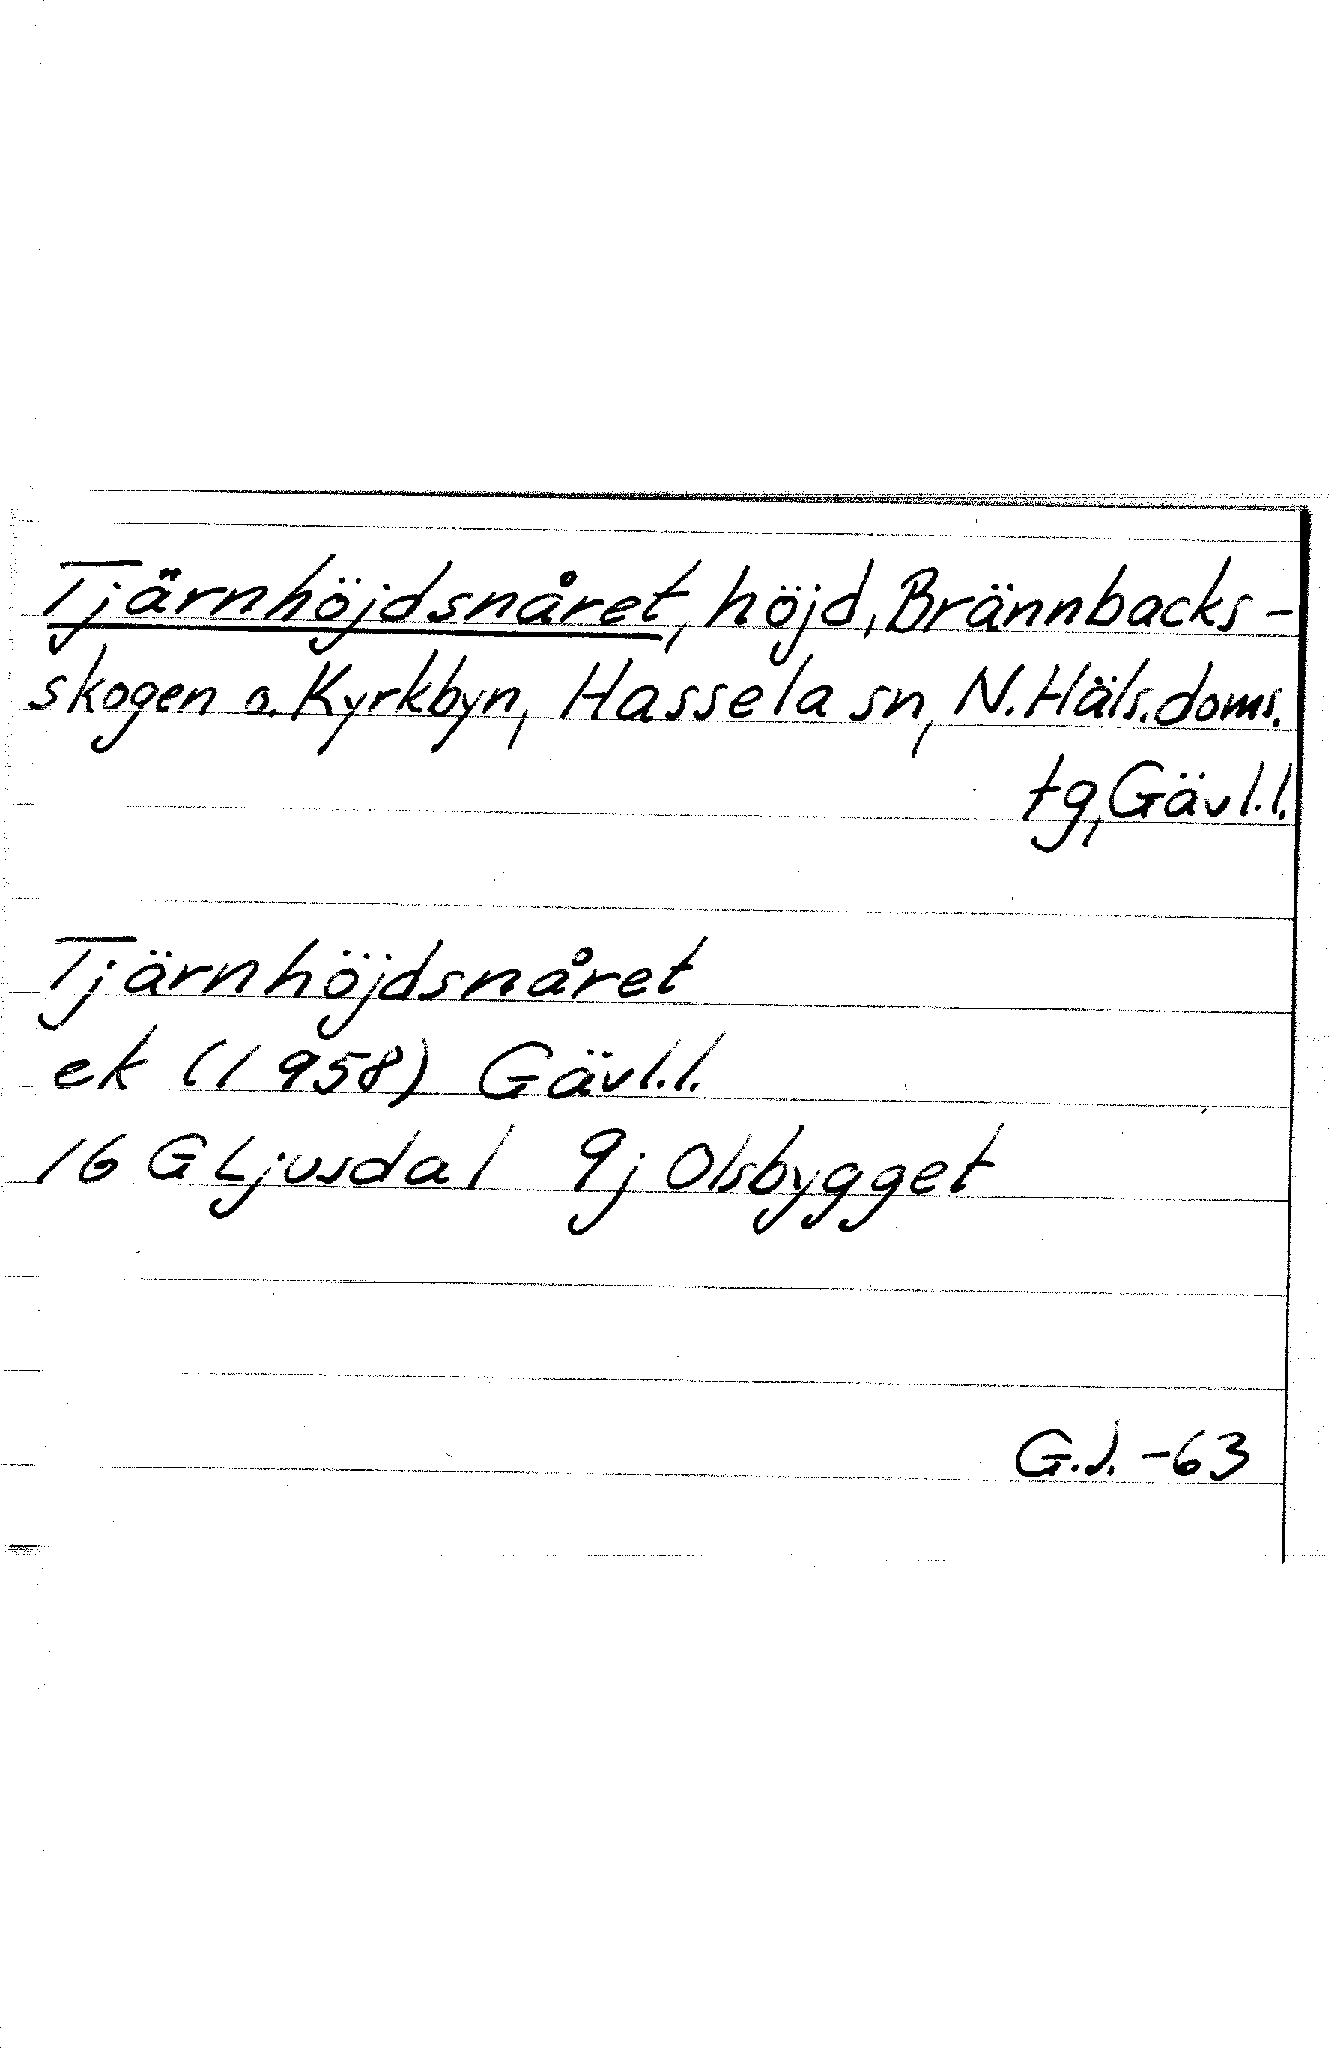 Tjärnhöjdsnåret, höjd, Brännbacks-
skogen o. Kyrkbyn, Hassela sn, N. Häls. doms.
tg, Gävl. l.
Tjärnhöjdsnåret
ek (1958) Gävl. l.
16 G Ljusdal 9j Olsbygget
G.J. -63